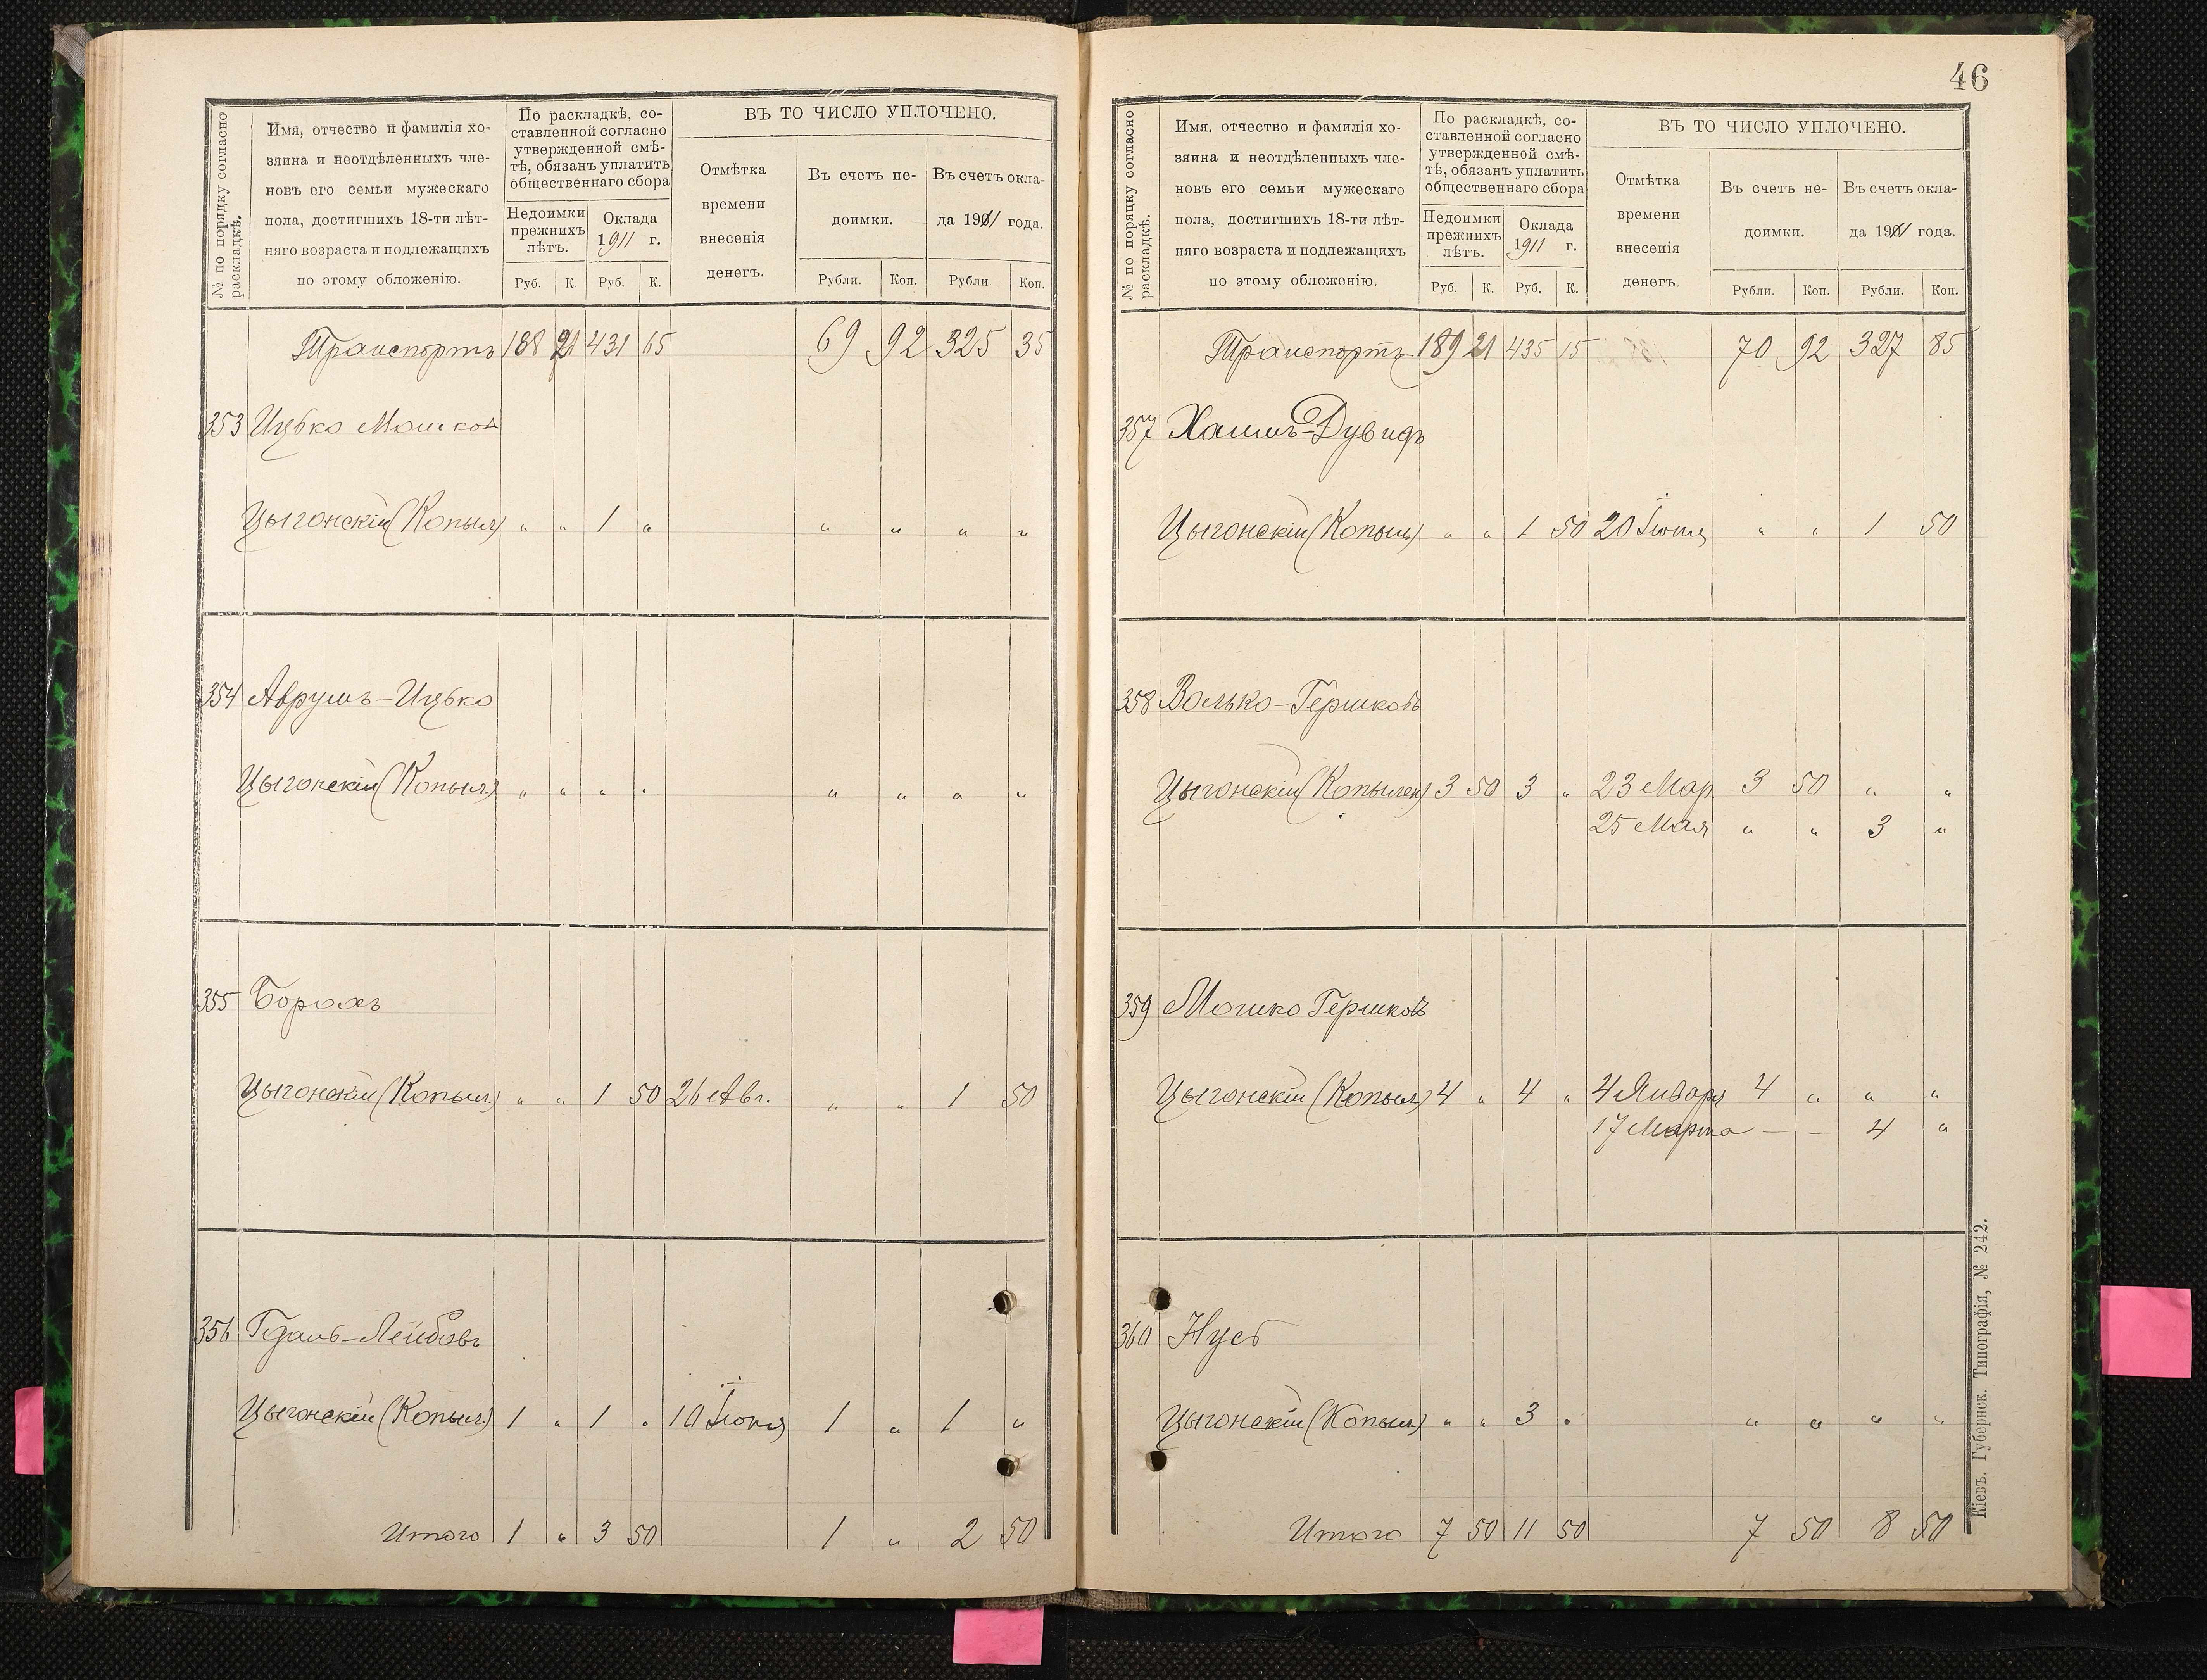 46
№ по порядку согласно раскладкѣ.
Имя, отчество и фамилія хо-
зяина и неотдѣленныхъ чле-
новъ его семьи мужескаго
пола, достигшихъ 18-ти лѣт-
няго возраста и подлежащихъ
по этому обложенію.
По раскладкѣ, со-
ставленной согласно
утвержденной смѣ-
тѣ, обязанъ уплатить
общественнаго сбора
Недоимки прежнихъ лѣтъ.
Оклада 1911 г.
Руб. К. Руб. К.
ВЪ ТО ЧИСЛО УПЛОЧЕНО.
Отмѣтка времени внесенія денегъ.
Въ счетъ не-
доимки.
Въ счетъ окла-
да 1911 года.
Рубли. Коп. Рубли Коп.
Транспортъ 188 21 431 65 69 92 325 35
353 Ицько Мошков
Цыгонскій (Копыл) " " 1 " " " " "
354 Аврумъ-Ицько
Цыгонскій (Копыл.) " " " " " " " "
355 Борохъ
Цыгонскій (Копыл.) " " 1 50 26 Авг. " " 1 50
356 Гдаль-Лейбовъ
Цыгонскій (Копыл.) 1 " 1 " 10 Іюня 1 " 1 "
Итого 1 " 3 50 1 " 2 50
№ по порядку согласно раскладкѣ.
Имя. отчество и фамилія хо-
зяина и неотдѣленныхъ чле-
новъ его семьи мужескаго
пола, достигшихъ 18-ти лѣт-
няго возраста и подлежащихъ
по этому обложенію.
По раскладкѣ, со-
ставленной согласно
утвержденной смѣ-
тѣ, обязанъ уплатить
общественнаго сбора
Недоимки прежнихъ лѣтъ.
Оклада 1911 г.
Руб. К. Руб. К.
ВЪ ТО ЧИСЛО УПЛОЧЕНО.
Отмѣтка времени внесенія денегъ.
Въ счетъ не-
доимки.
Въ счетъ окла-
да 1911 года.
Рубли. Коп. Рубли. Коп.
Транспортъ 189 21 435 15 70 92 327 85
357 Хаимъ-Дувидъ
Цыгонскій (Копыл) " " 1 50 20 " " 1 50
358 Волько-Гершковъ
Цыгонскій (Копылен) 3 50 3 " 23 Мар. 3 50 " "
25 Мая " " 3 "
359 Мошко Гершковъ
Цыгонскій (Копыл.) 4 " 4 " 4 Января 4 " " "
17 Марта — — 4 "
360 Нусь
Цыгонскій (Копыл.) " " 3 " " " " "
Итого 7 50 11 50 7 50 8 50
Кіевъ. Губернск. Типографія, № 242.